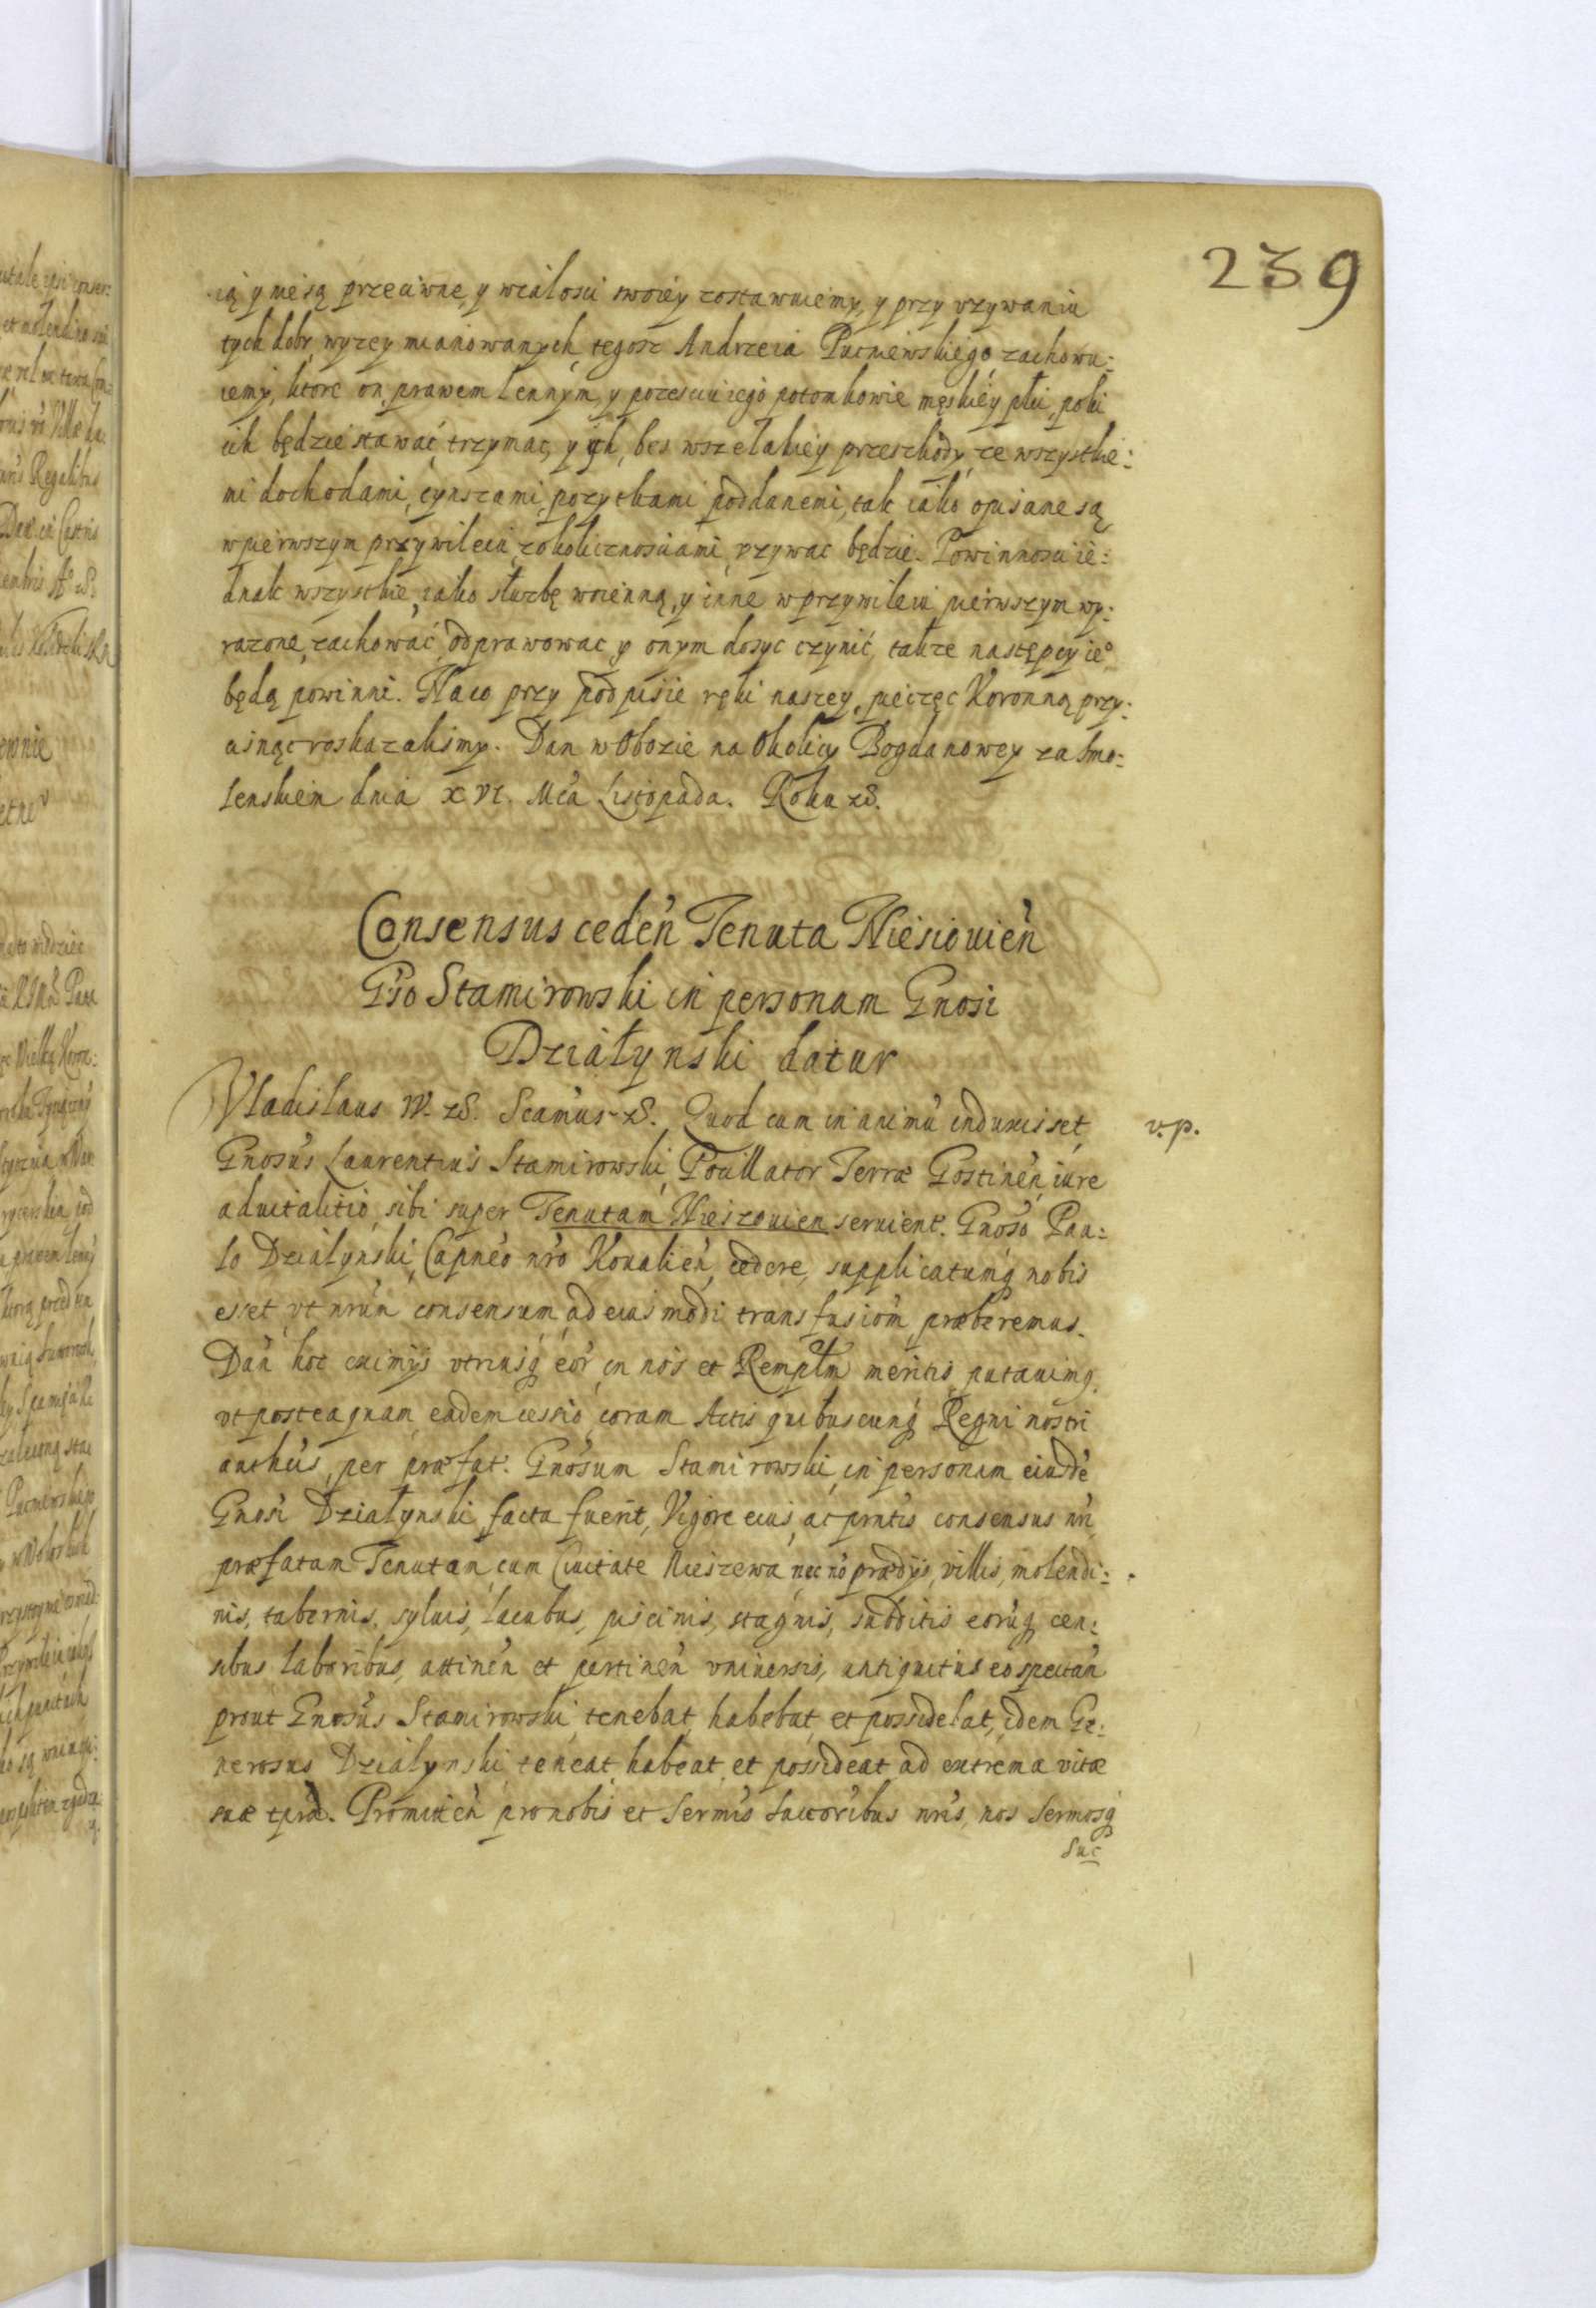 239
ią y nie są przeciwne, y wcalosci swoiey zostawuiemy, y przy vzywaniu
tych dobr wyzey mianowanych tegosz Andrzeia Pucniewskiego zachowu:
iemy, ktore on prawem lennym, y po zesciu iego potomkowie męskiey płci, poki
ich będzie stawać, trzymac, y ich, bes wszelakiey przeszkody, ze wszystkie:
mi dochodami, cynszami, pozytkami poddanemi, tak iako opisane są
w pierwszym przywileiu, z okolicznosciami vzywac będzie. Powinnosci ie:
dnak wszystkie, iako słuzbę woienną, y inne w przywileiu pierwszym wy:
razone, zachować, odprawowac y onym dosyc czynić, takze następcy ieo
będą powinni. Na co przy podpisie ręki naszey, pieczęc Koronną przy:
cisnąc roskazalismy. Dan w Obozie na Okolicy Bogdanowey za Smo:
lenskiem dnia XVI. Mca Listopada. Roku &.
Consensus ceden Tenuta Niesiouien
Gso Stamirowski in personam Gnosi
Działynski datur
Vladislaus IV. &. Scamus &. Quod cum in animu induxisset v.p.
Gnosus Laurentius Stamirowski, Pocillator Terræ Gostinen, iure
aduitalitio, sibi super Tenutam Nieszouien seruient. Gnoso Pau:
lo Działynski, Capneo nro Koualien, cedere, supplicatumq nobis
esset, vt nrun consensum ad eius modi transfusiom præberemus.
Dan hoc eximijs vtriusq eor in nos et Remplm meritis putauimq,
vt posteaquam eadem cessio, coram Actis quibuscunq Regni nostri
authcis, per præfat. Gnosum Stamirowski, in personam eiusde
Gnosi Działynski facta fuerit, Vigore eius, ac pntis consensus nri
præfatam Tenutam cum Ciuitate Nieszewa nec no prædijs, villis, molendi:
nis, tabernis, syluis, lacubus, piscinis, stagnis, subditis eoruq cen:
sibus laboribus, attinen et pertinen vniuersis, antiquitus eo spectan
prout Gnosus Stamirowski, tenebat, habebat, et possidebat, idem Ge:
nerosus Działynski teneat, habeat, et possideat ad extrema vitæ
suæ tpra. Promitten pro nobis et Sermis Succoribus nris, nos Sermosq
Suc